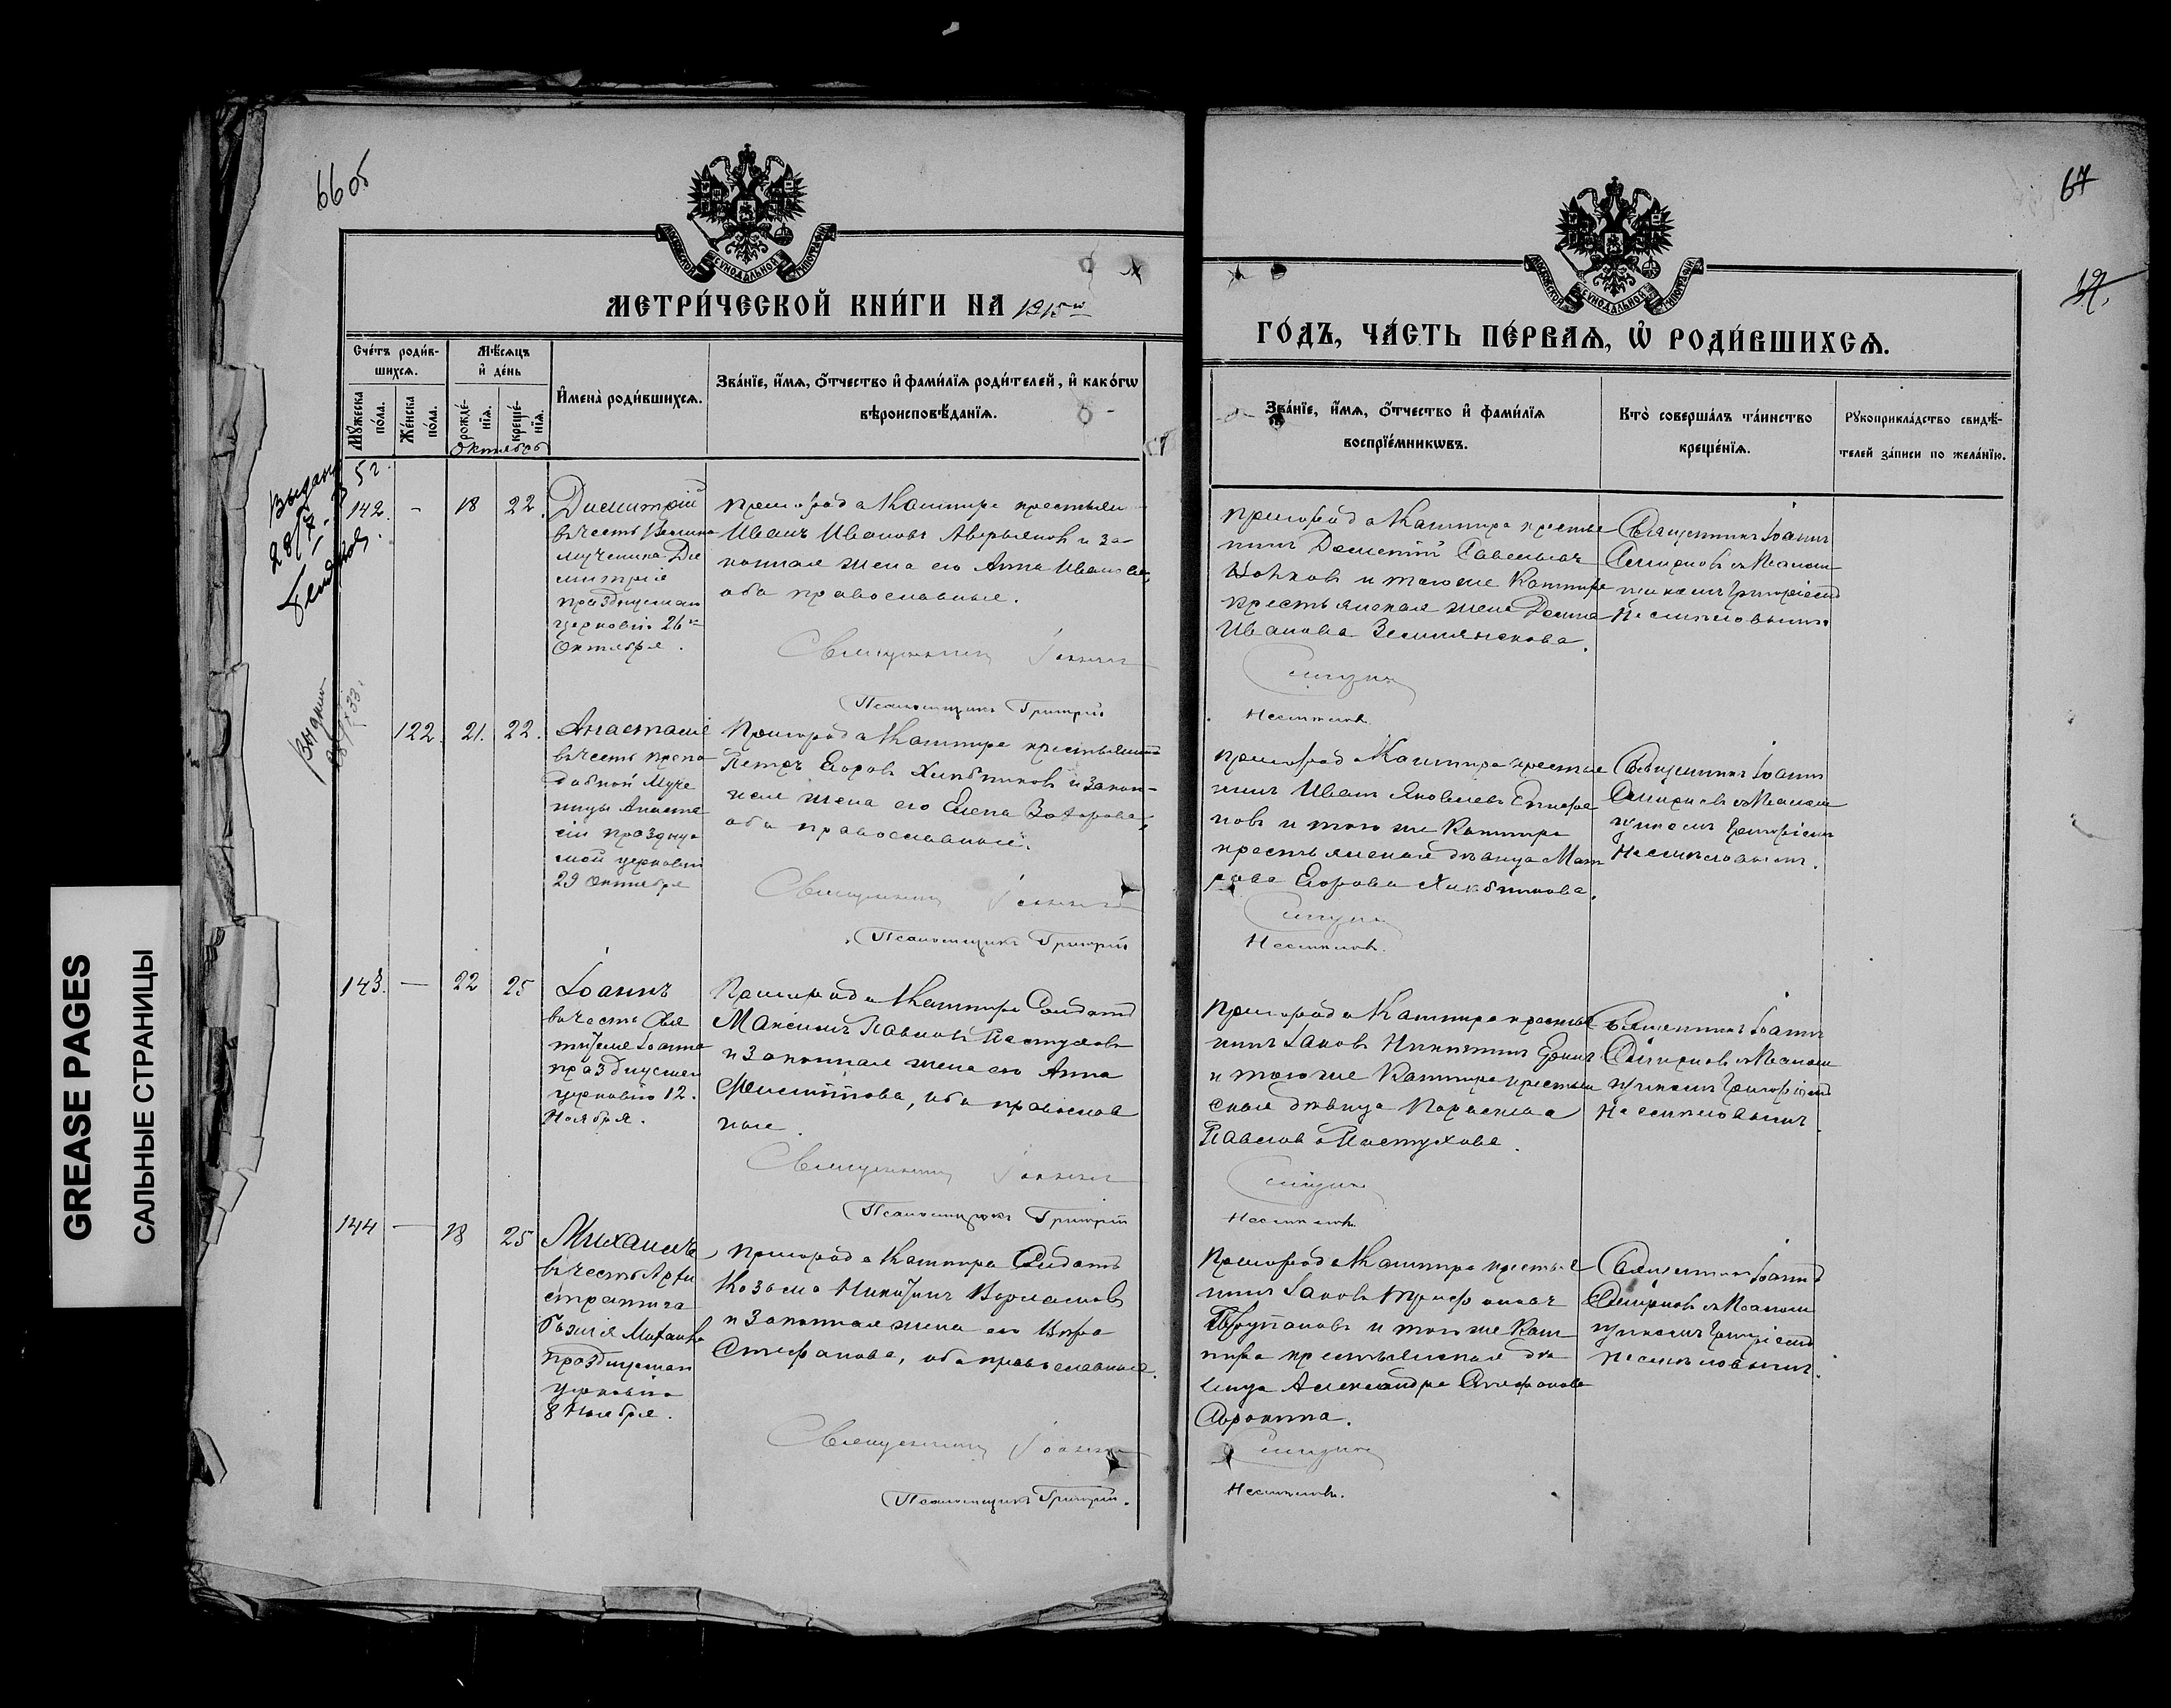 66 об
67
МЕТРИ́ЧЕСКОЙ КНИ́ГИ НА 1915й
ГО́ДЪ, ЧА́СТЬ ПЕ́РВАѦ, Ѡ҆ РОДИ́ВШИХСѦ.
Сче́тъ роди́в-
шихсѧ.
Мꙋ́жеска
по́ла.
Же́нска
по́ла.
Мѣ́сѧцъ
и҆ де́нь
рожде́-
нїѧ.
креще́-
нїѧ.
Октябрь
И҆мена̀ роди́вшихсѧ.
Зва́нїе, и҆́мѧ, ѻ҆́тчество и҆ фами́лїѧ роди́телей, и҆ како́гѡ
вѣроисповѣ́данїѧ.
Зва́нїе, и҆́мѧ, ѻ҆́тчество и҆ фами́лїѧ
воспрїе́мникѡвъ.
Кто̀ соверша́лъ та́инство
креще́нїѧ.
Рꙋкоприкла́дство свидѣ́-
телей за́писи по жела́нїю.
142. - 18 22.
Димитрій
въ честь Велико
мученика Ди
митрія
празднуеман
церковію 26го
Октября.
Пригорода Каштира крестьян
Иванъ Ивановъ Аверьяновъ и за-
конная жена его Анна Иванова,
оба православные.
Священникъ Іоаннъ
Псаломщикъ Григорій
Пригорода Каштира крестья
нинъ Дометій Савельевъ
и того же Каштира
крестьянская жена
Иванова Землянскова.
Несмеловъ
Священникъ Іоаннъ
Смирновъ съ Псалом
щикомъ Григоріемъ
Несмеловымъ
122. 21. 22.
Анастасія
въ честь препо
добной Муче
ницы Анаста
сіи празднуе
мой церковію
29 Октября
Пригорода Каштира крестьянинъ
Петръ Егоровъ Хлебниковъ и закон-
ная жена его Елена
оба православные.
Священникъ Іоаннъ
Псаломщикъ Григорій
Пригорода Каштира крестья
нинъ Иванъ Яковлевъ Епифа
новъ и того же Каштира
крестьянская дѣвица Мат
рона Егорова Хлебникова.
Несмеловъ.
Священникъ Іоаннъ
Смирновъ съ Псалом
щикомъ Григоріемъ
Несмеловымъ.
143. — 22 25
Іоаннъ
въ честь Свя
тителя Іоанна
празднуеман
церковію 12.
Ноября.
Пригорода Каштира Солдатъ
Максимъ Павловъ Пастуховъ
и законная жена его Анна
оба православ
ные.
Священникъ Іоаннъ
Псаломщикъ Григорій
Пригорода Каштира крестья
нинъ Іаковъ Никитинъ
и того же Каштира крестьян
ская дѣвица Параскева
Павлова Пастухова.
Несмеловъ.
Священникъ Іоаннъ
Смирновъ съ Псалом
щикомъ Григоріемъ
Несмеловымъ.
144 — 18 25
Михаилъ
въ честь Архи
стратига
Божія Михаила
празднуеман
церковію
8 Ноября.
Пригорода Каштира Солдатъ
Козьма Никитинъ Варламовъ
и законная жена его
Стефанова, оба православные.
Священникъ Іоаннъ
Псаломщикъ Григорій.
Пригорода Каштира крестья
нинъ Іаковъ Трифоновъ
и того же Каш
тира крестьянская дѣ
вица Александра Стефанова
Сорокина.
Несмеловъ.
Священникъ Іоаннъ
Смирновъ съ Псалом
щикомъ Григоріемъ
Несмеловымъ.
GREASE PAGES
САЛЬНЫЕ СТРАНИЦЫ